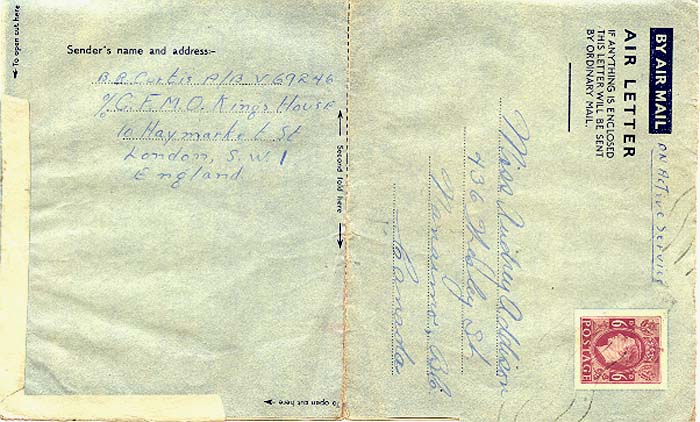 To open cut here
Sender's name and address:-
B.B. Curtis A/B V 69246
℅ G.F.M.O. Kings House
10 Haymarket St
London, S.W.1
England
Second fold here
To open cut here
BY AIR MAIL
AIR LETTER
IF ANYTHING IS ENCLOSED
THIS LETTER WILL BE SENT
BY ORDINARY MAIL.
On Active Service
Miss Audrey Addison
436 Wesley St
Nanaimo, B.C.
Canada
6D 6D
POSTAGE